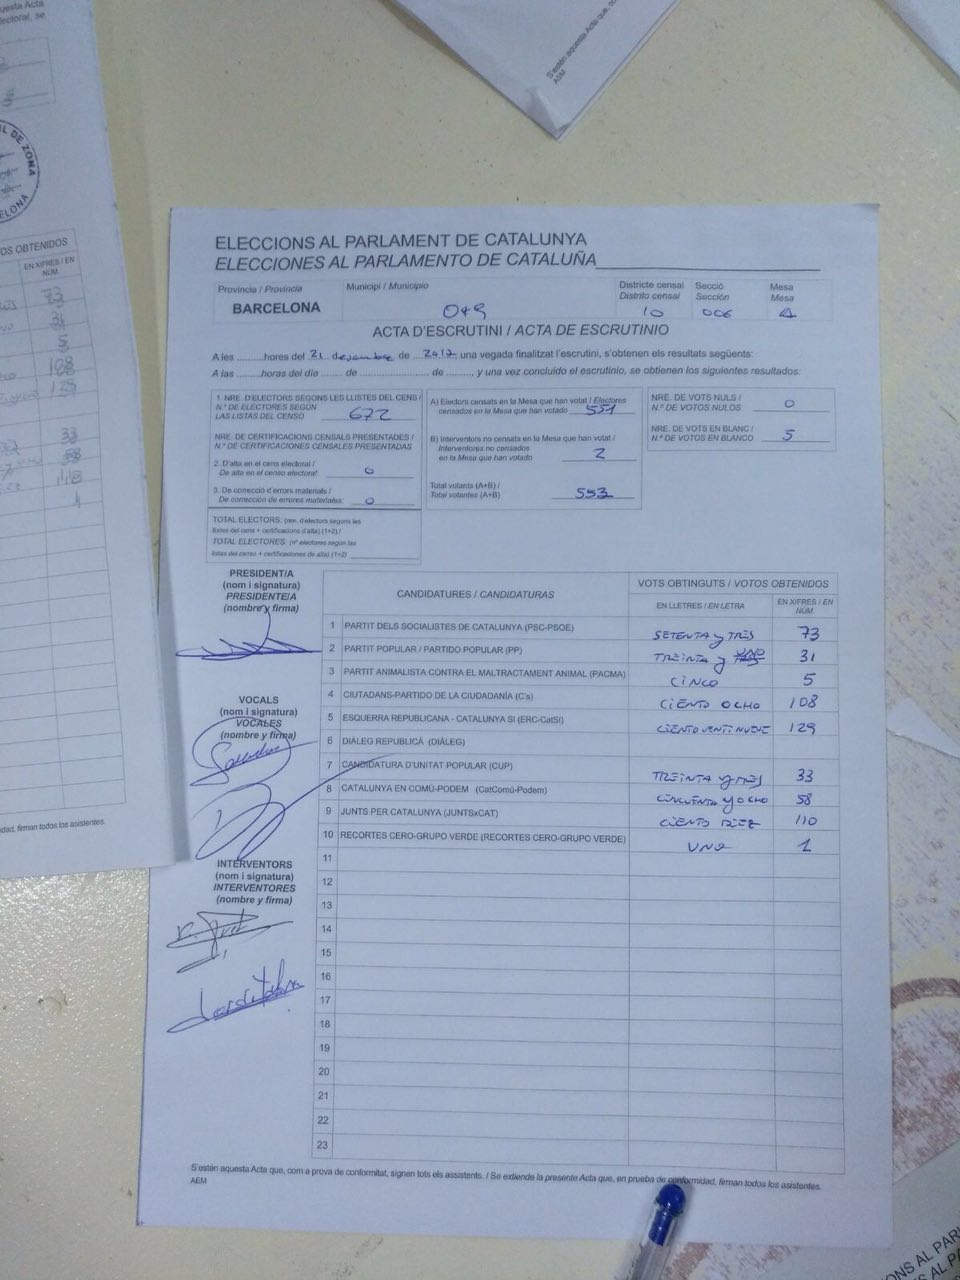 questa Acta
lectoral, se
S'estén aquesta Acta que, co
AEM
L DE ZONA
ELONA
OS OBTENIDOS
EN XIFRES / EN
NÚM.
73
31
5
108
129
33
58
110
1
idad, firman todos los asistentes.
ELECCIONS AL PARLAMENT DE CATALUNYA
ELECCIONES AL PARLAMENTO DE CATALUÑA
Província / Provincia
Municipi / Municipio
Districte censal
Distrito censal
Secció
Sección
Mesa
Mesa
BARCELONA
049
10
006
A
ACTA D'ESCRUTINI / ACTA DE ESCRUTINIO
A les ..........hores del 21 desembre de ...2017 una vegada finalitzat l'escrutini, s'obtenen els resultats següents:
A las .........horas del día ....... de ........................... de ........., y una vez concluido el escrutinio, se obtienen los siguientes resultados:
1. NRE. D'ELECTORS SEGONS LES LLISTES DEL CENS /
N.º DE ELECTORES SEGÚN
LAS LISTAS DEL CENSO 672
NRE. DE CERTIFICACIONS CENSALS PRESENTADES /
N.º DE CERTIFICACIONES CENSALES PRESENTADAS
2. D'alta en el cens electoral /
De alta en el censo electoral: 0
3. De correcció d'errors materials /
De corrección de errores materiales: 0
TOTAL ELECTORS: (nre. d'electors segons les
llistes del cens + certificacions d'alta) (1+2) /
TOTAL ELECTORES: (nº electores según las
listas del censo + certificaciones de alta) (1+2)
A) Electors censats en la Mesa que han votat / Electores
censados en la Mesa que han votado 551
B) Interventors no censats en la Mesa que han votat /
Interventores no censados
en la Mesa que han votado 2
Total votants (A+B) /
Total votantes (A+B) 553
NRE. DE VOTS NULS /
N.º DE VOTOS NULOS 0
NRE. DE VOTS EN BLANC /
N.º DE VOTOS EN BLANCO 5
PRESIDENT/A
(nom i signatura)
PRESIDENTE/A
(nombre y firma)
VOCALS
(nom i signatura)
VOCALES
(nombre y firma)
INTERVENTORS
(nom i signatura)
INTERVENTORES
(nombre y firma)
CANDIDATURES / CANDIDATURAS
VOTS OBTINGUTS / VOTOS OBTENIDOS
EN LLETRES / EN LETRA
EN XIFRES / EN
NÚM.
1 PARTIT DELS SOCIALISTES DE CATALUNYA (PSC-PSOE) SETENTA y TRES 73
2 PARTIT POPULAR / PARTIDO POPULAR (PP) TREINTA y UNO 31
3 PARTIT ANIMALISTA CONTRA EL MALTRACTAMENT ANIMAL (PACMA) CINCO 5
4 CIUTADANS-PARTIDO DE LA CIUDADANÍA (C's) CIENTO OCHO 108
5 ESQUERRA REPUBLICANA - CATALUNYA SÍ (ERC-CatSí) CIENTO VENTINUEVE 129
6 DIÀLEG REPUBLICÀ (DIÀLEG)
7 CANDIDATURA D'UNITAT POPULAR (CUP) TREINTA y TRES 33
8 CATALUNYA EN COMÚ-PODEM (CatComú-Podem) CINCUENTA y OCHO 58
9 JUNTS PER CATALUNYA (JUNTSxCAT) CIENTO DIEZ 110
10 RECORTES CERO-GRUPO VERDE (RECORTES CERO-GRUPO VERDE) UNO 1
11
12
13
14
15
16
17
18
19
20
21
22
23
S'estén aquesta Acta que, com a prova de conformitat, signen tots els assistents. / Se extiende la presente Acta que, en prueba de conformidad, firman todos los asistentes.
AEM
ONS AL PAR
ES AL PA